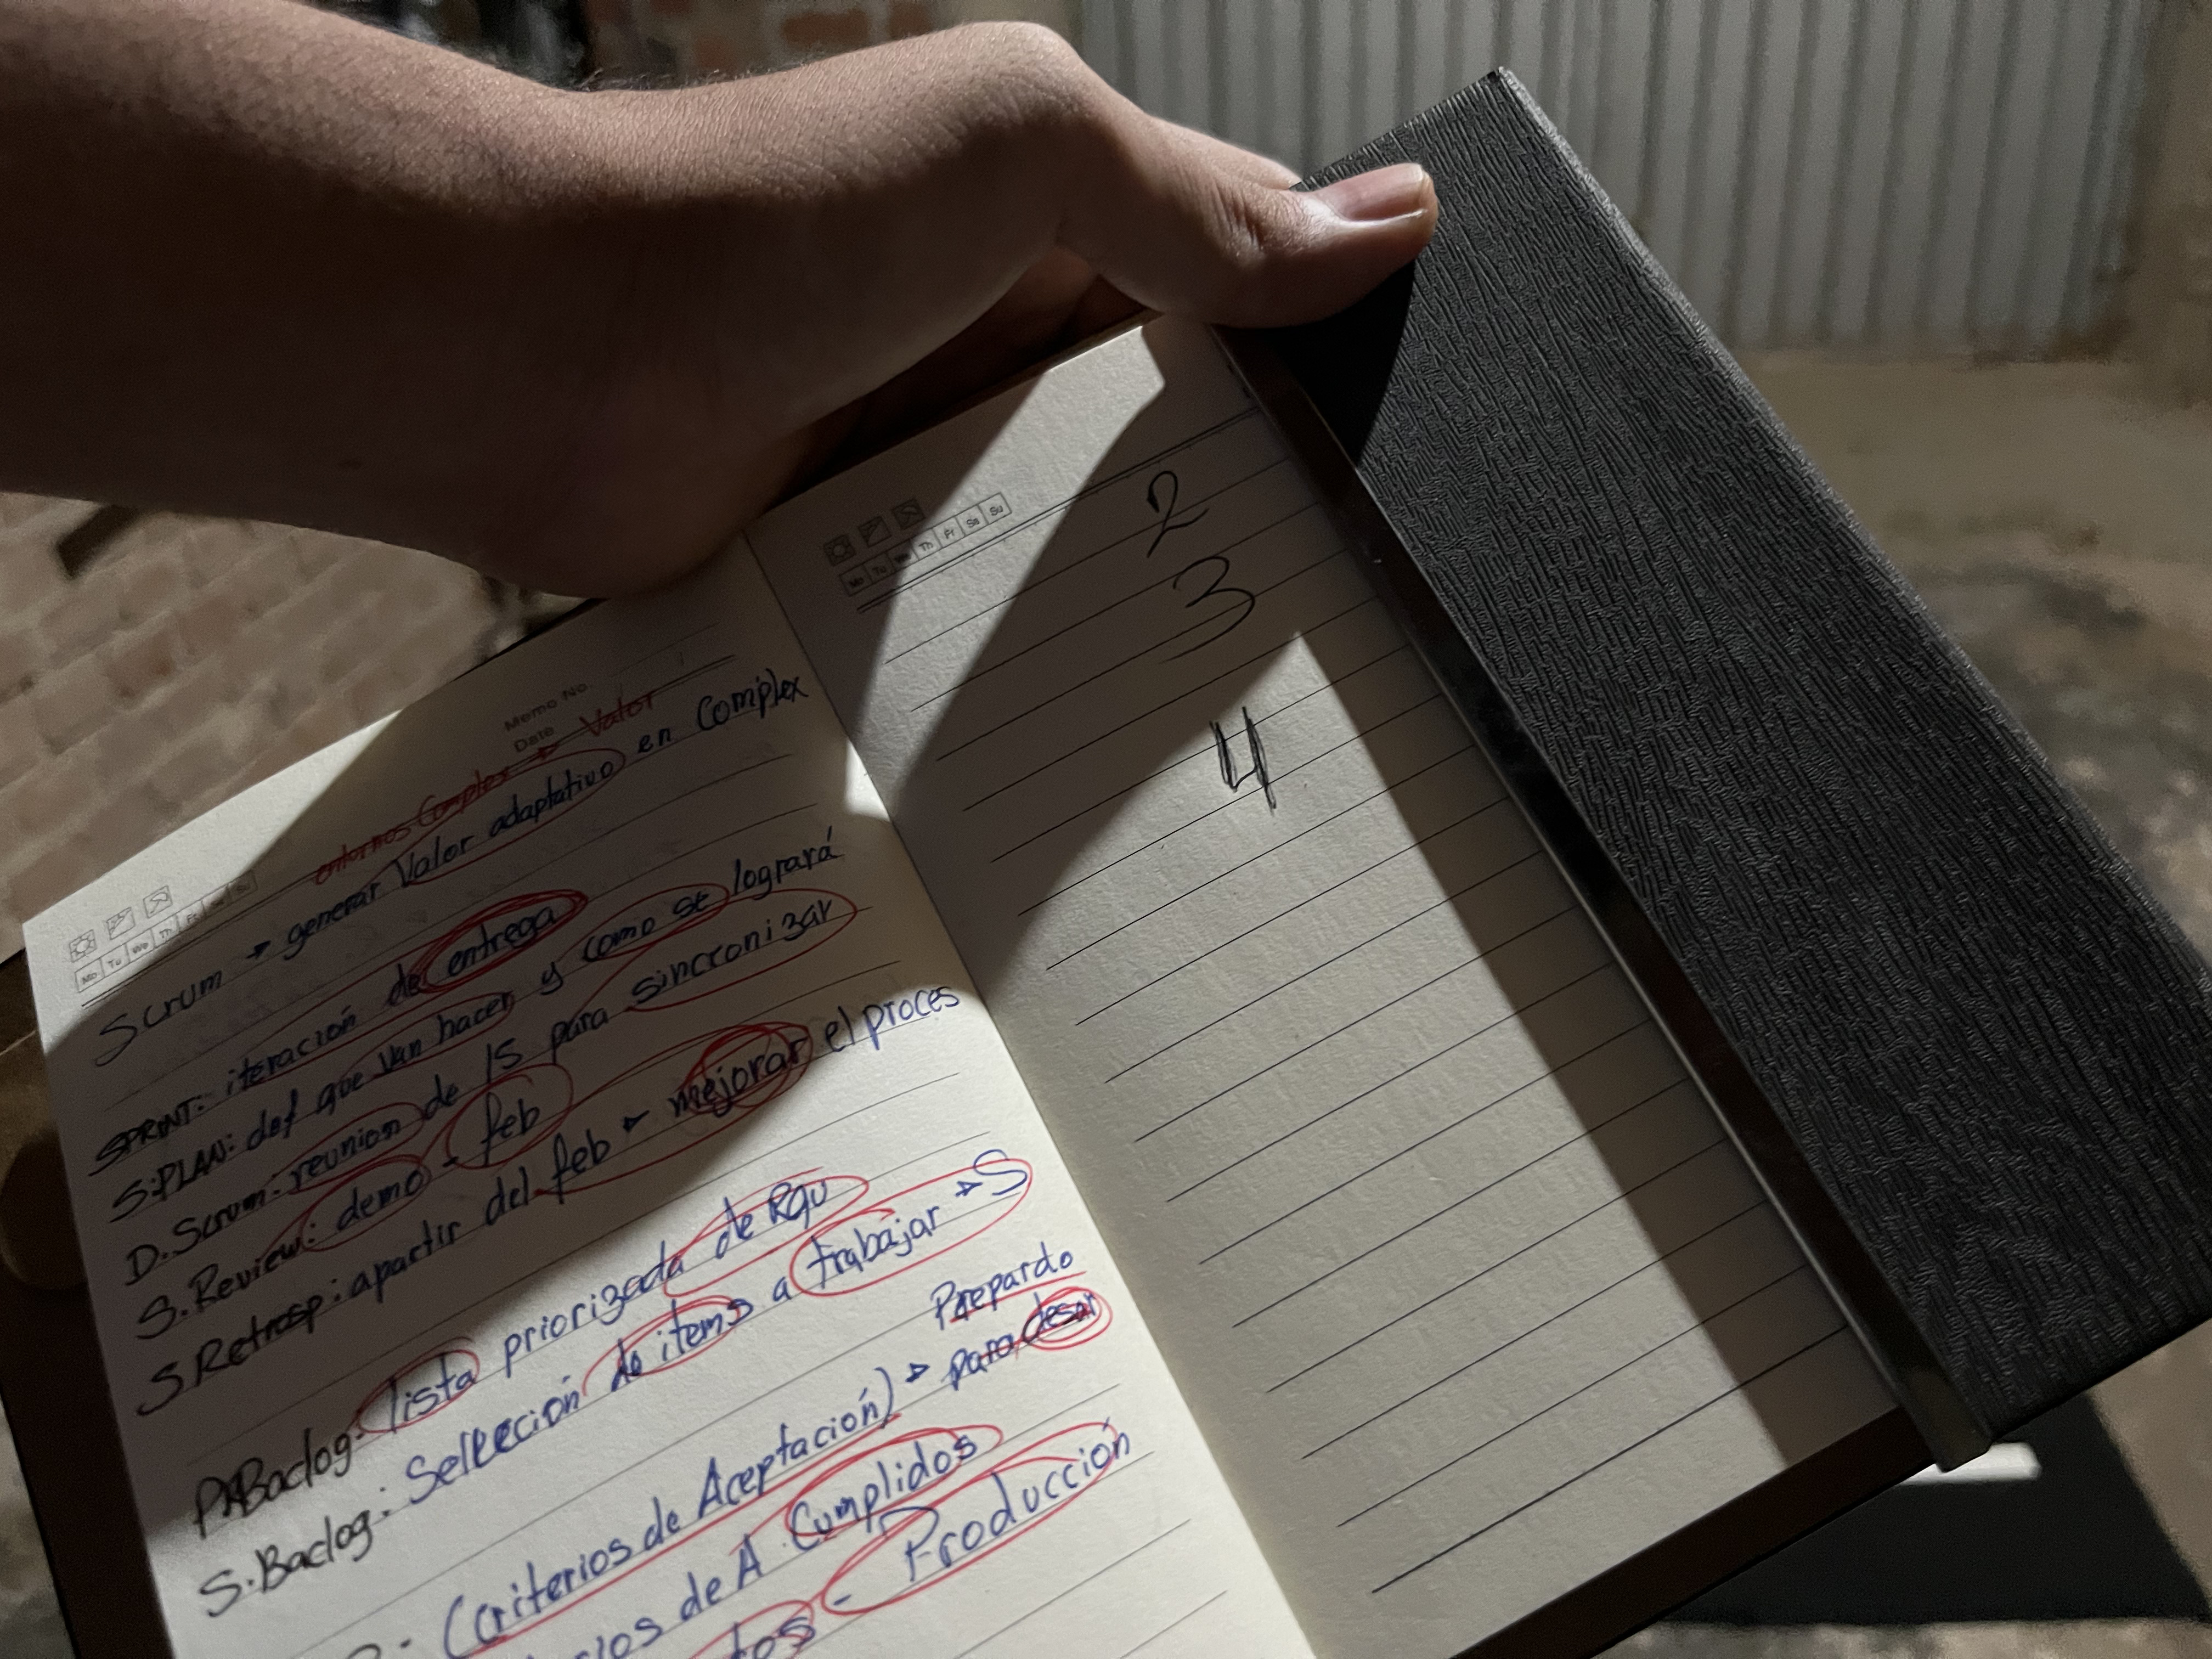 Memo No.
Date
entornos Complex → Valor
Mo Tu We Th Fr Sa Su
Scrum → generar Valor adaptativo en Complex
SPRINT: iteración de entrega
S.PLAN: def que van hacer y como se logrará
D. Scrum: reunion de 15 para sincronizar
S. Review: demo - feb
S Retrosp: apartir del feb → mejorar el proces
P. Baclog: lista priorizada de Rqu
S. Baclog: Sellección de items a trabajar → S
Prepardo
(Criterios de Aceptación) → para desar
de A Cumplidos
- Producción
Mo Tu We Th Fr Sa Su
2
3
4